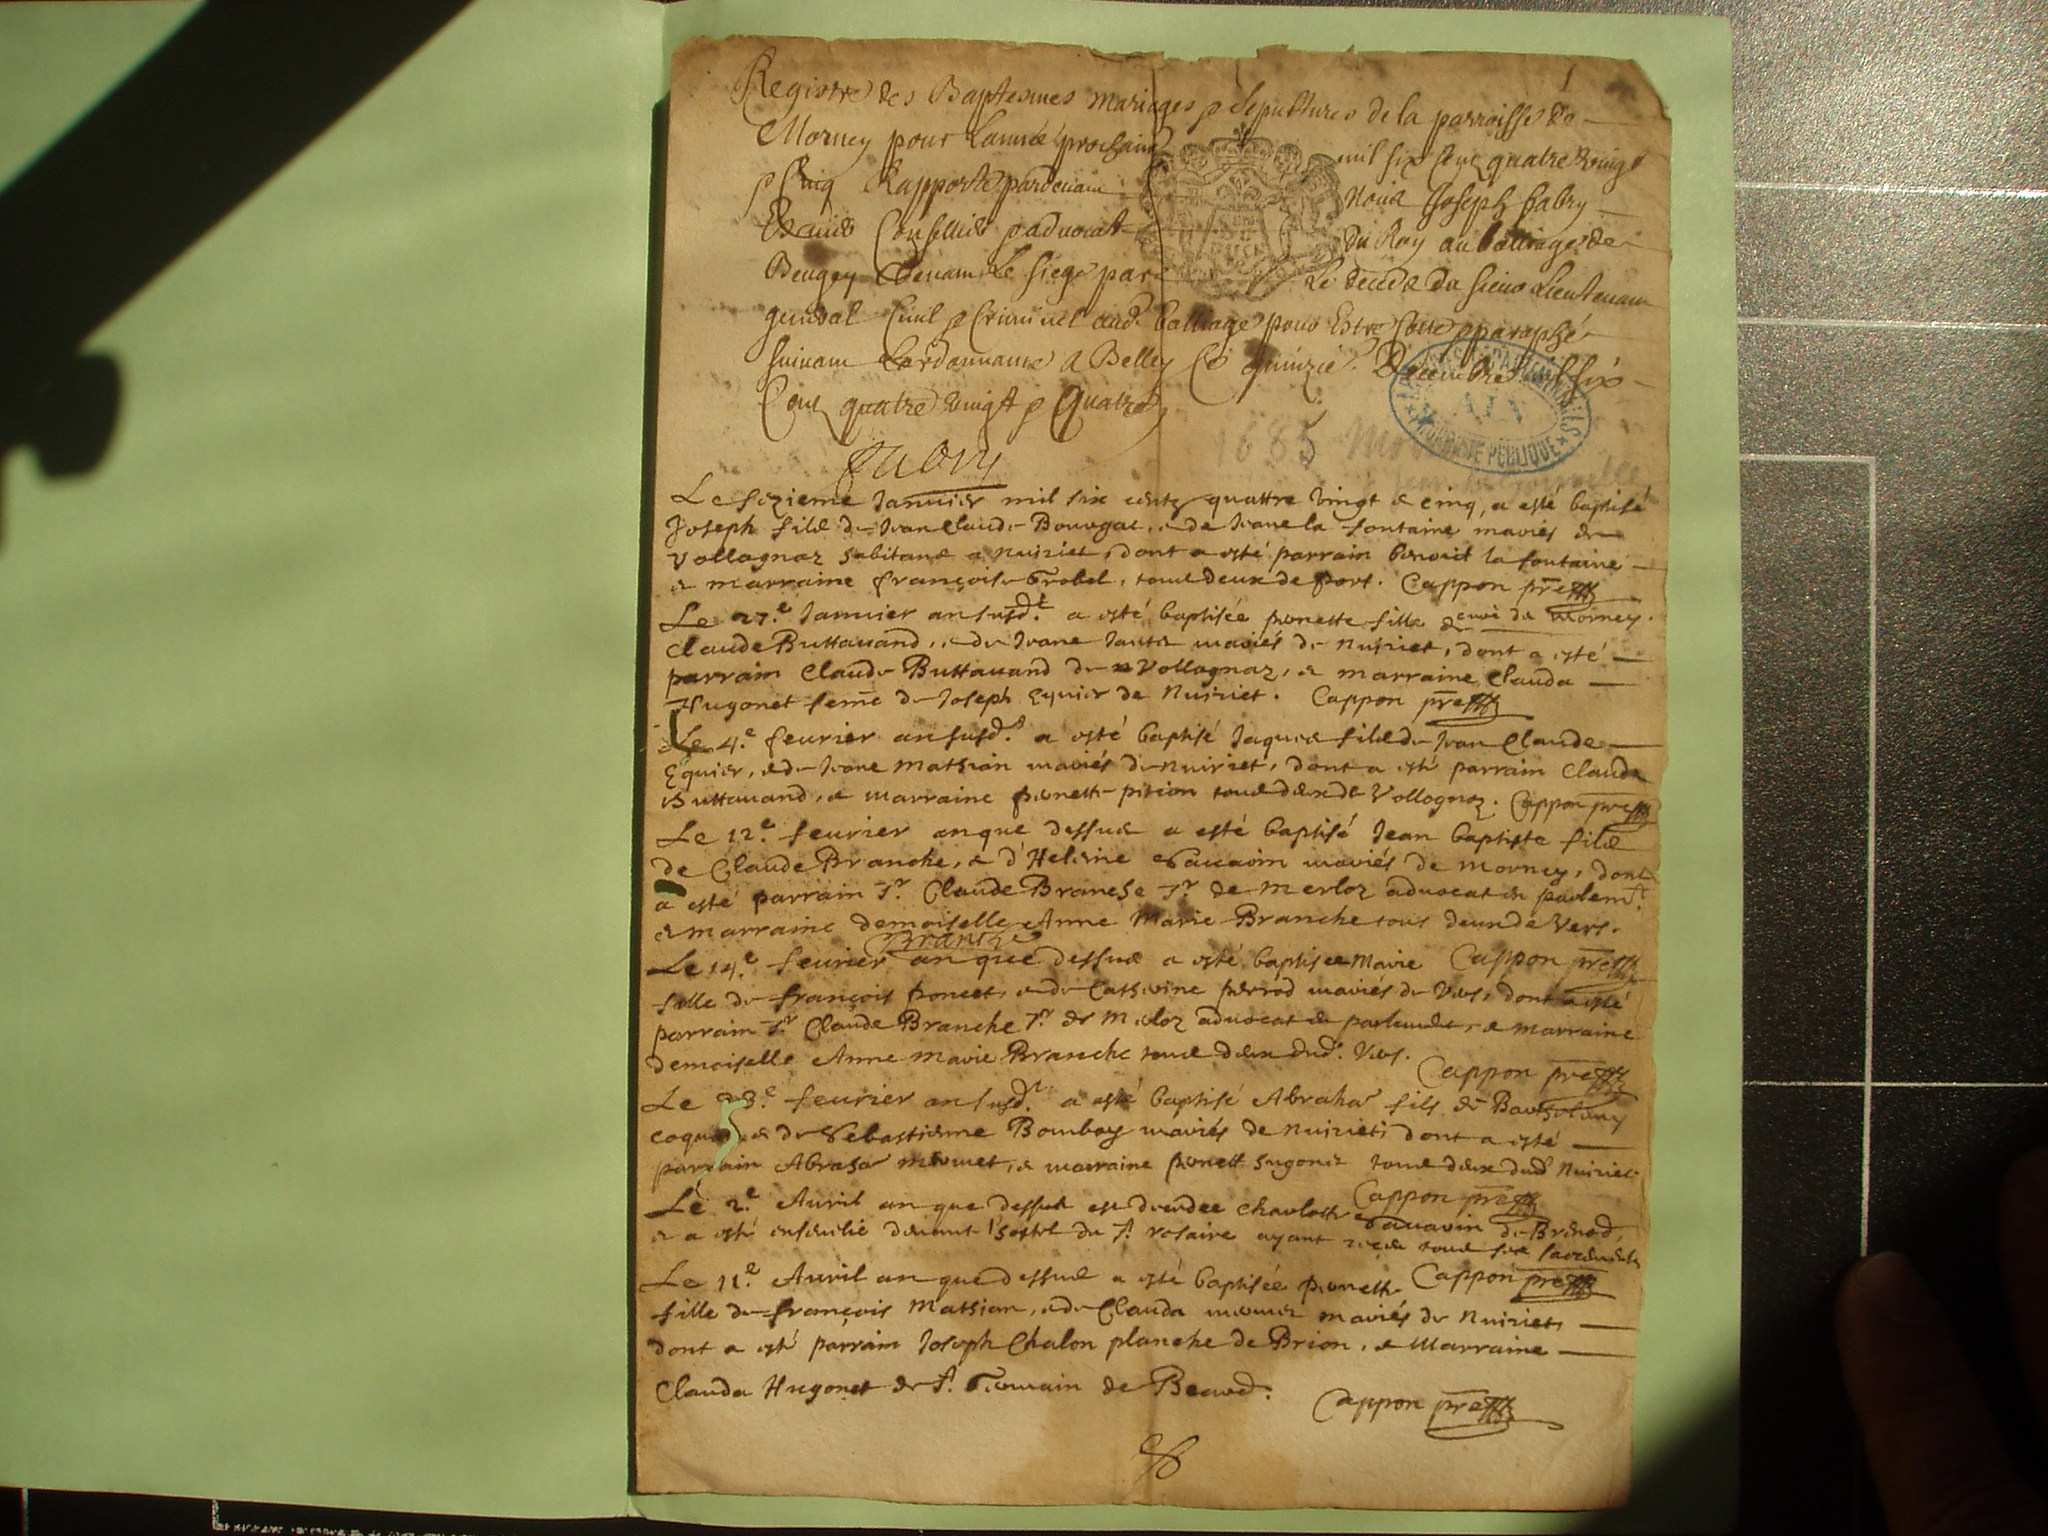 1
Registre des Baptesmes mariages & sepultures de la parroisse de
Morney pour Lannée prochaine mil six cent quatre vingt
& Cinq Rapporté pardevant Nous Joseph fabry
Escuier Conseiller & advocat du Roy au balliage de
Beugey tenant Le siege par Le deceds du sieur Lieutenant
general Civil & Criminel aud. balliage pour Estre Cotté & paraphé
suivant Lordonnance a Belley Ce quinzie. Decembre mil six
Cent quatre vingt & quatre
fabry
1685
ARCHIVES DÉPARTEMENTALES
AIN
PUBLIQUE
Le sezieme Janvier mil six cents quattre vingt & cinq, a esté baptisé
Joseph fils de Jean Claude Bourgat, & de Jeane la fontaine mariés de
Vollognaz habitans a nuriet, dont a esté parrain benoit la fontaine
& marraine françoise Trobel, tous deux de port. Cappon pre
Le 27.e Janvier an susd.t a esté baptisée pernette fille curé de Morney.
Claude Buttavand, & de Jeane Jantet mariés de Nuiriet, dont a esté
parrain Claude Buttavand de Vollognaz, & marraine Clauda
Hugonet feme de Joseph Equier de Nuiriet. Cappon pre
Le 4.e fevrier an susd.t a esté baptisé Jaques fils de Jean Claude
Equier, & de Jeane Mathian mariés de nuiriet, dont a esté parrain Claude
Buttavand, & marraine pernette pition tous deux de Vollognaz. Cappon pre
Le 12.e fevrier an que dessus a esté baptisé Jean baptiste fils
de Claude Branche, & d'Heleine Savarin mariés de Morney, dont
a esté parrain Sr. Claude Branche Sr. de Merloz advocat en parlemt.
& marraine demoiselle Anne Marie Branche tous deux de Vers.
Branche
Le 14.e fevrier an que dessus a esté baptisee Marie Cappon pre
fille de françois poncet, & de Catherine perrod mariés de Vers, dont a esté
parrain Sr. Claude Branche Sr. de Merloz advocat en parlement, & marraine
demoiselle Anne Marie Branche tous deux dud. Vers.
Cappon pre
Le 23.e fevrier an susd.t a esté baptisé Abraha fils de Bartholomy
coquet & de Sebastienne Bomboy mariés de nuiriet, dont a esté
parrain Abraha mermet, & marraine pernette hugonet tous deux dud. Nuiriet
Cappon pre
Le 2.e Avril an que dessus est decedee Charlotte Savarin de Brenod,
& a esté ensevelie devant l'hostel du St. rosaire ayant receu tous ses sacrements
Le 11.e Avril an que dessus a esté baptisée pernette Cappon pre
fille de françois Mathian, & de Clauda mermet mariés de Nuiriet,
dont a esté parrain Joseph Chalon planche de Brion, & Marraine
Clauda Hugonet de St. Germain de Beard.
Cappon pre